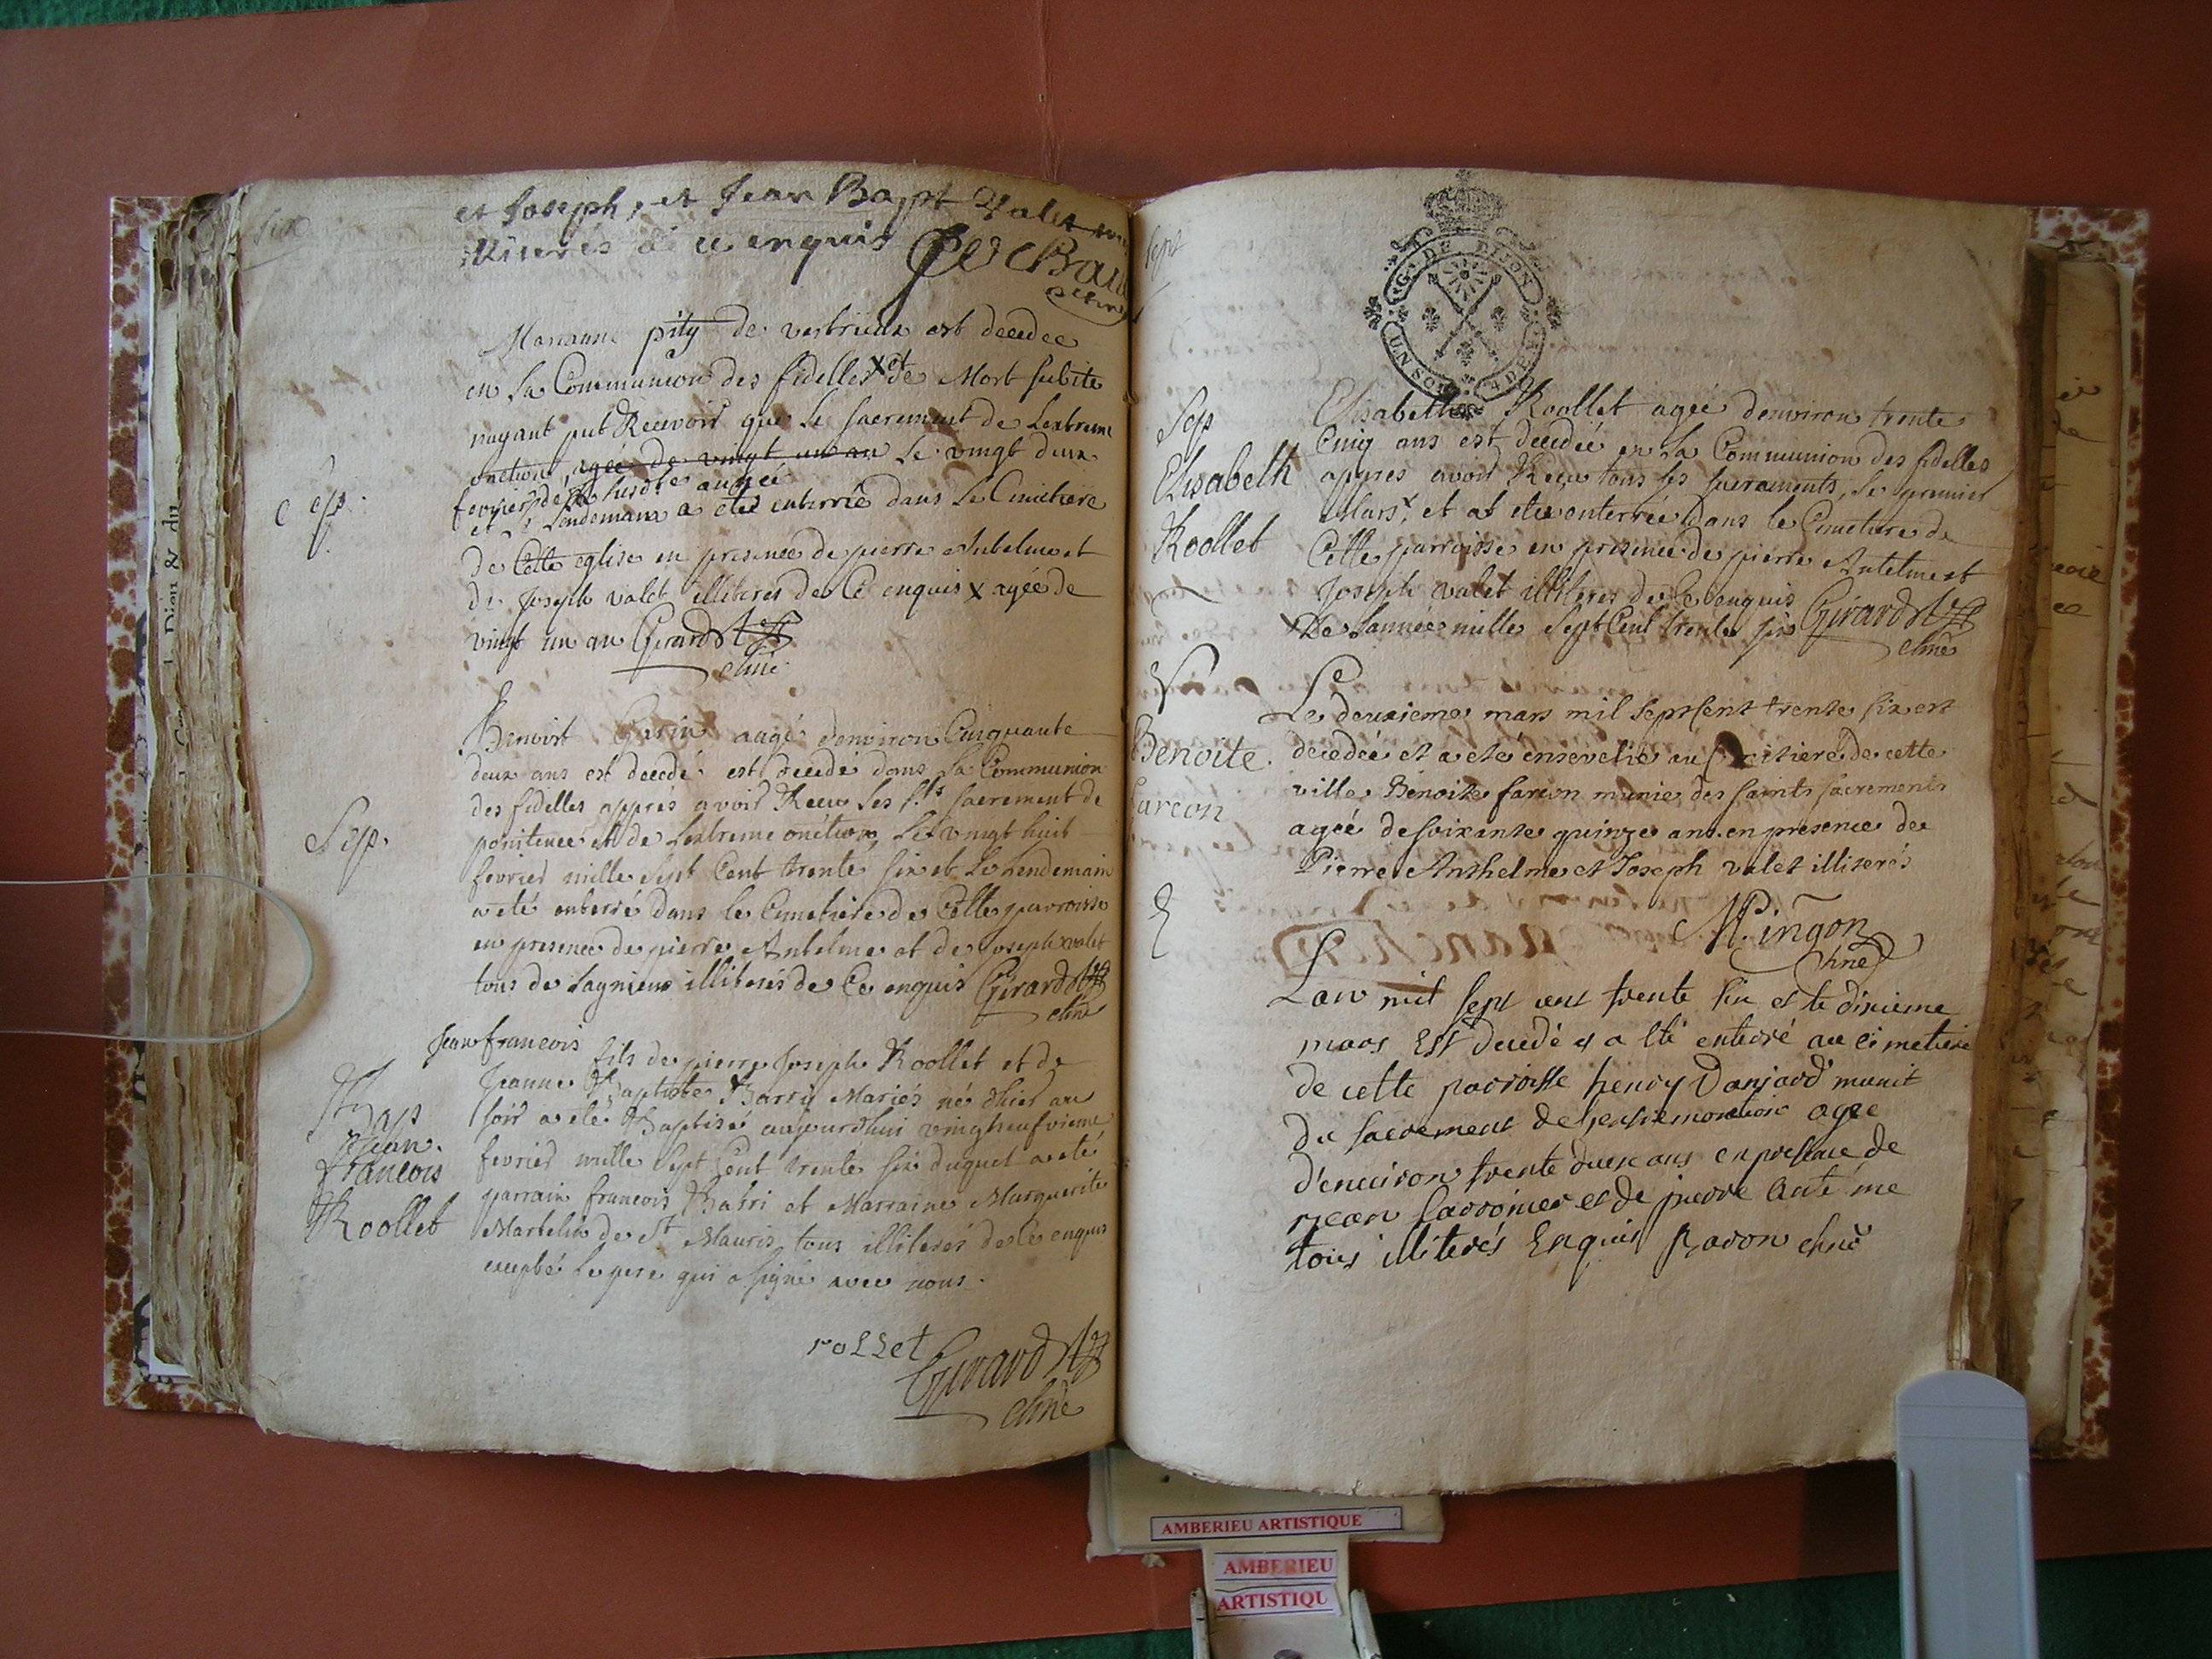 six
et Joseph, et Jean Bapt Valet
illiterés de ce enquis
Marianne pity de vertrieux est decedee
en La Communion des fidelles X et de Mort subite
nayant put Recevoir que Le sacrement de Lextreme
onction, agee de vingt un an Le vingt deux
fevrier de susdte année
et Lendemain a eté enterrée dans Le Cimetiere
de Cette eglise en presence de pierre Antelme et
de Joseph valet illiteres de Ce enquis X agée de
vingt un an Girard
chne
Sep.
Benoist Gerin augé denviron Cinquante
deux ans est decedé est decedé dans La Communion
des fidelles appres avoir Receu Les sts sacrement de
penitence et de Lextreme onction, Le vingt huit
fevrier mille Sept Cent trente six et Le Lendemain
a eté enterré dans le Cimetiere de Cette parroisse
en presence de pierre Antelme et de Joseph valet
tous de Lagnieu illiterés de Ce enquis Girard
chne
Sep.
Jean francois fils de pierre Joseph Roollet et de
Jeanne Baptiste Barri Mariés né dhier au
soir a eté Baptisé aujourdhui vingtneufvieme
fevrier mille Sept Cent trente six duquel a eté
parrain francois Barri et Marraine Marguerite
Martelin de St Mauris, tous illiterés de Ce enquis
excepté Le pere qui a signé avec nous.
Bap
Jean.
francois
Roollet
rollet Girard
chne
sept
G. DE DIJON
UN SOL 4 DEN.
Sep
Elisabeth
Roollet
Elisabeth Roollet ageé denviron trente
Cinq ans est decedéé en La Communion des fidelles
appres avoir Receu tous ses sacrements, Le premier
Mars, et at etéé enterréé dans le Cimetiere de
Cette parroisse en presence de pierre Antelme et
Joseph valet illiteres de Ce enquis Girard
De Lannéé mille Sept Cent trente six
chne
Benoite.
farcon
Le deuxieme mars mil sept cent trente six est
decedéé et a eté ensevelie au Cimetiere de cette
ville Benoite farcon munie des saints sacrements
ageé de soixante quinze ans en presence de
Pierre Anthelme et Joseph valet illiterés
M. Pingon
chne
Lan mil sept cent trente six et le dixieme
mars Est decedé et a Eté enterré au cimetiere
de cette parroisse henry Danjard munit
du sacrement de Lextremonction age
d'environ trente deux ans en presence de
jean Larronier et de pierre Antelme
tous illiterés Enquis Ravon chne
AMBERIEU ARTISTIQUE
AMBERIEU
ARTISTIQU